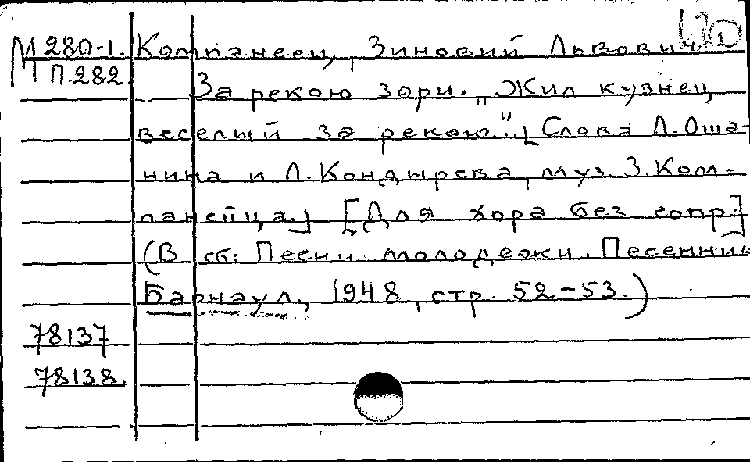 М 280-1. Компанеец, Зиновий Львович.
П.282
За рекою зори. „Жил кузнец
веселый за рекою". [Слова Л. Оша-
нина и Л. Кондырева, муз. З. Ком-
панейца.] [Для хора без сопр.]
(В сб: Песни молодежи. Песенник
Барнаул, 1948, стр. 52-53.)
78137
78138.